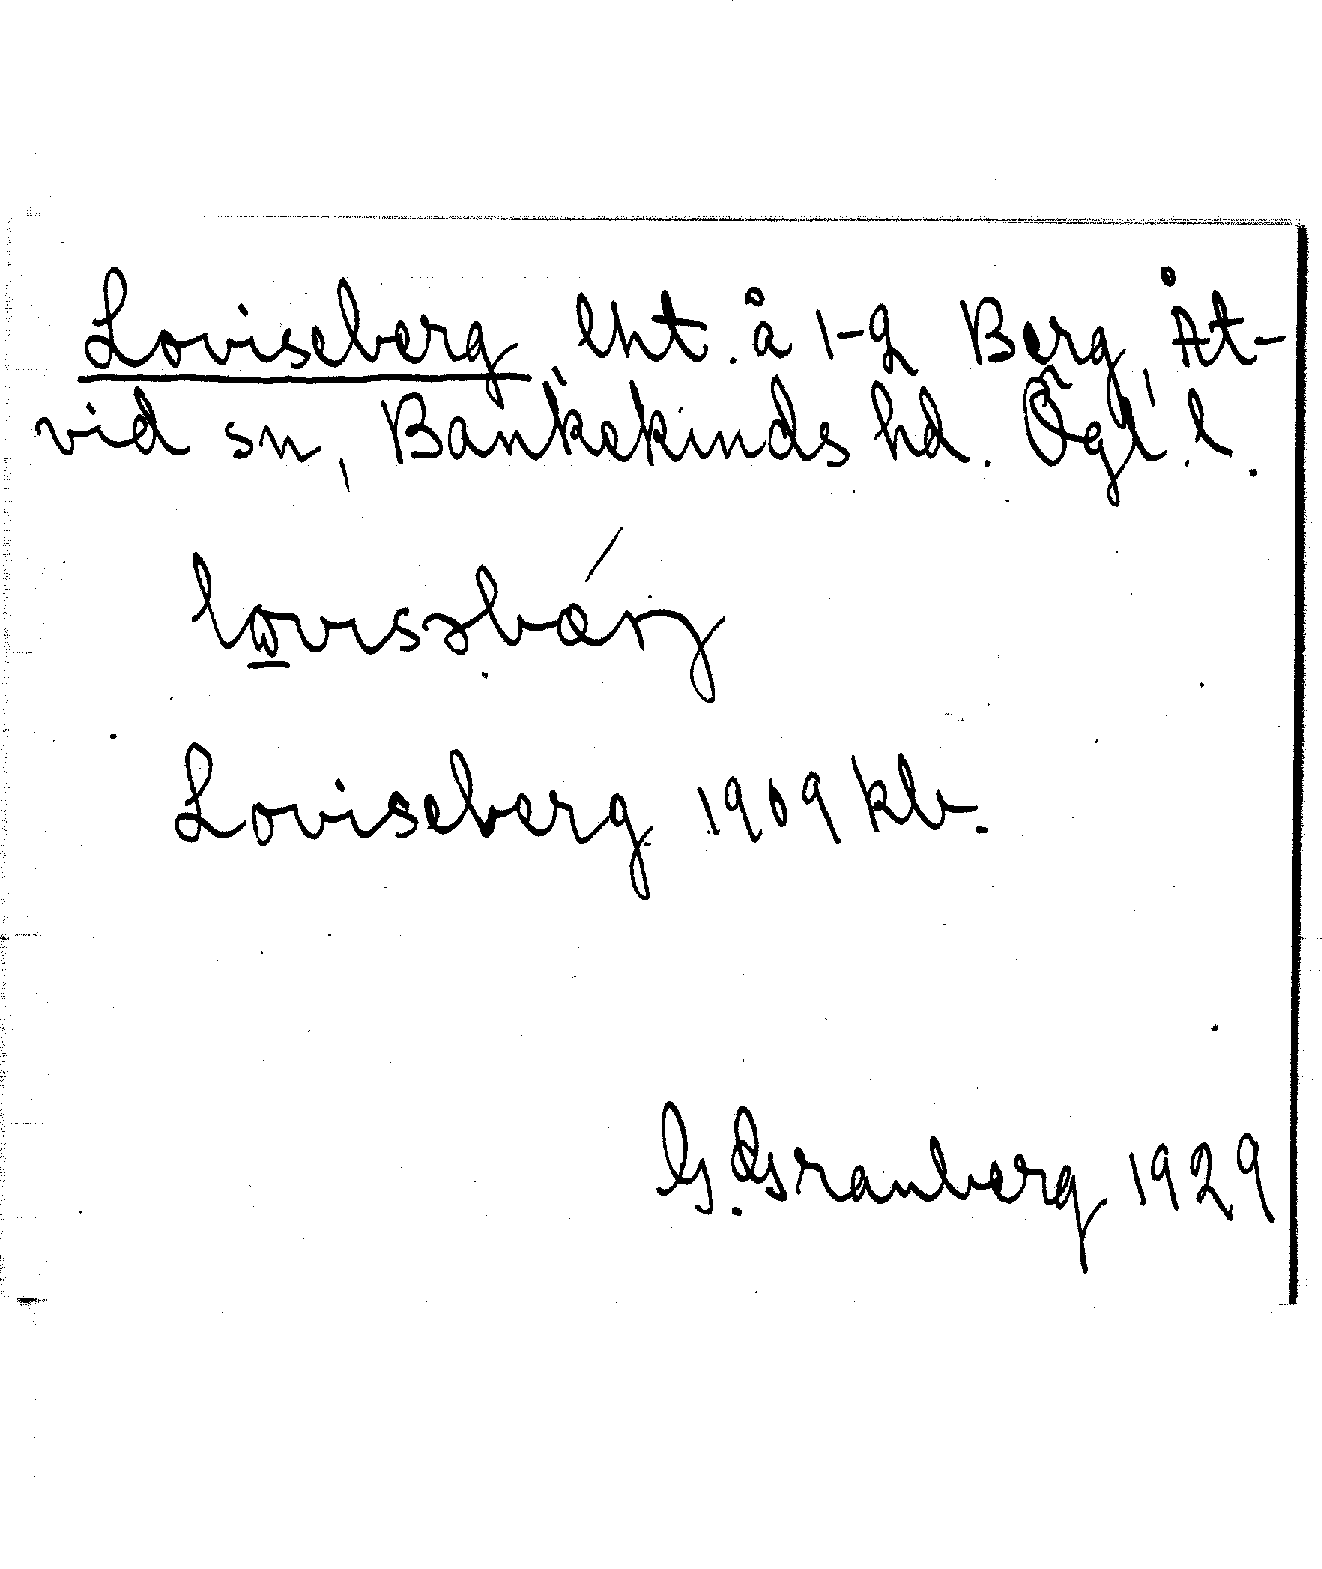 Loviseberg, lht. å 1-2 Berg, Åt-
vid sn, Bankekinds hd. Ögl. l.
lovisəbǽrg
Loviseberg 1909 kb.
G. Granberg 1929